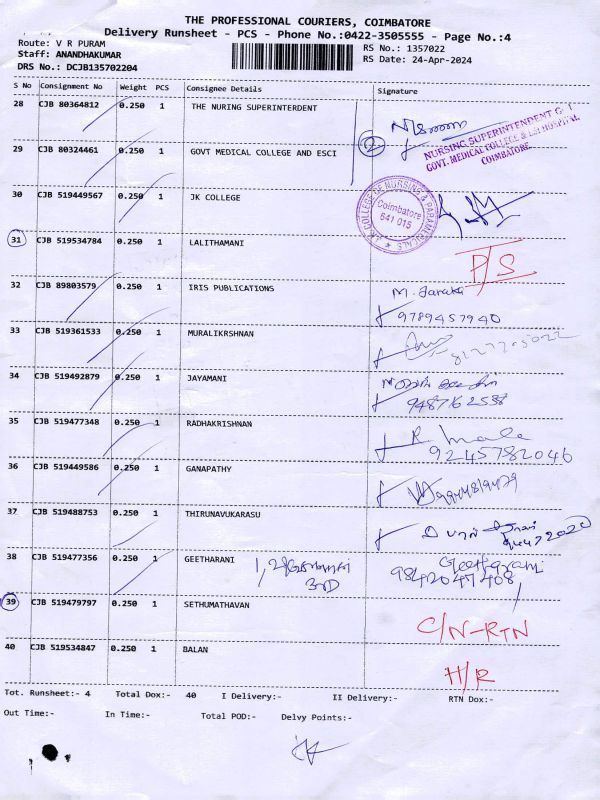 THE PROFESSIONAL COURIERS, COIMBATORE
Delivery Runsheet - PCS - Phone No.:0422-3505555 - Page No.:4
Route: V R PURAM RS No.: 1357022
Staff: ANANDHAKUMAR RS Date: 24-Apr-2024
DRS No.: DCJB135702204
S No Consignment No Weight PCS Consignee Details Signature
28 CJB 80364812 0.250 1 THE NURING SUPERINTERDENT
NURSING SUPERINTENDENT G I
GOVT. MEDICAL COLLEGE & ESI HOSPITAL
COIMBATORE
29 CJB 80324461 0.250 1 GOVT MEDICAL COLLEGE AND ESCI 2
30 CJB 519449567 0.250 1 JK COLLEGE
J.K. COLLEGE OF NURSING & PARAMEDICALS
Coimbatore
641 015
31 CJB 519534784 0.250 1 LALITHAMANI P/S
32 CJB 89803579 0.250 1 IRIS PUBLICATIONS M.
9789457940
33 CJB 519361533 0.250 1 MURALIKRSHNAN
34 CJB 519492879 0.250 1 JAYAMANI
9487162538
35 CJB 519477348 0.250 1 RADHAKRISHNAN R. Mala
9245782046
36 CJB 519449586 0.250 1 GANAPATHY
37 CJB 519488753 0.250 1 THIRUNAVUKARASU
38 CJB 519477356 0.250 1 GEETHARANI Geetharani
3RD 9842047408
39 CJB 519479797 0.250 1 SETHUMATHAVAN C/N-RTN
40 CJB 519534847 0.250 1 BALAN H/R
Tot. Runsheet:- 4 Total Dox:- 40 I Delivery:- II Delivery:- RTN Dox:-
Out Time:- In Time:- Total POD:- Delvy Points:-